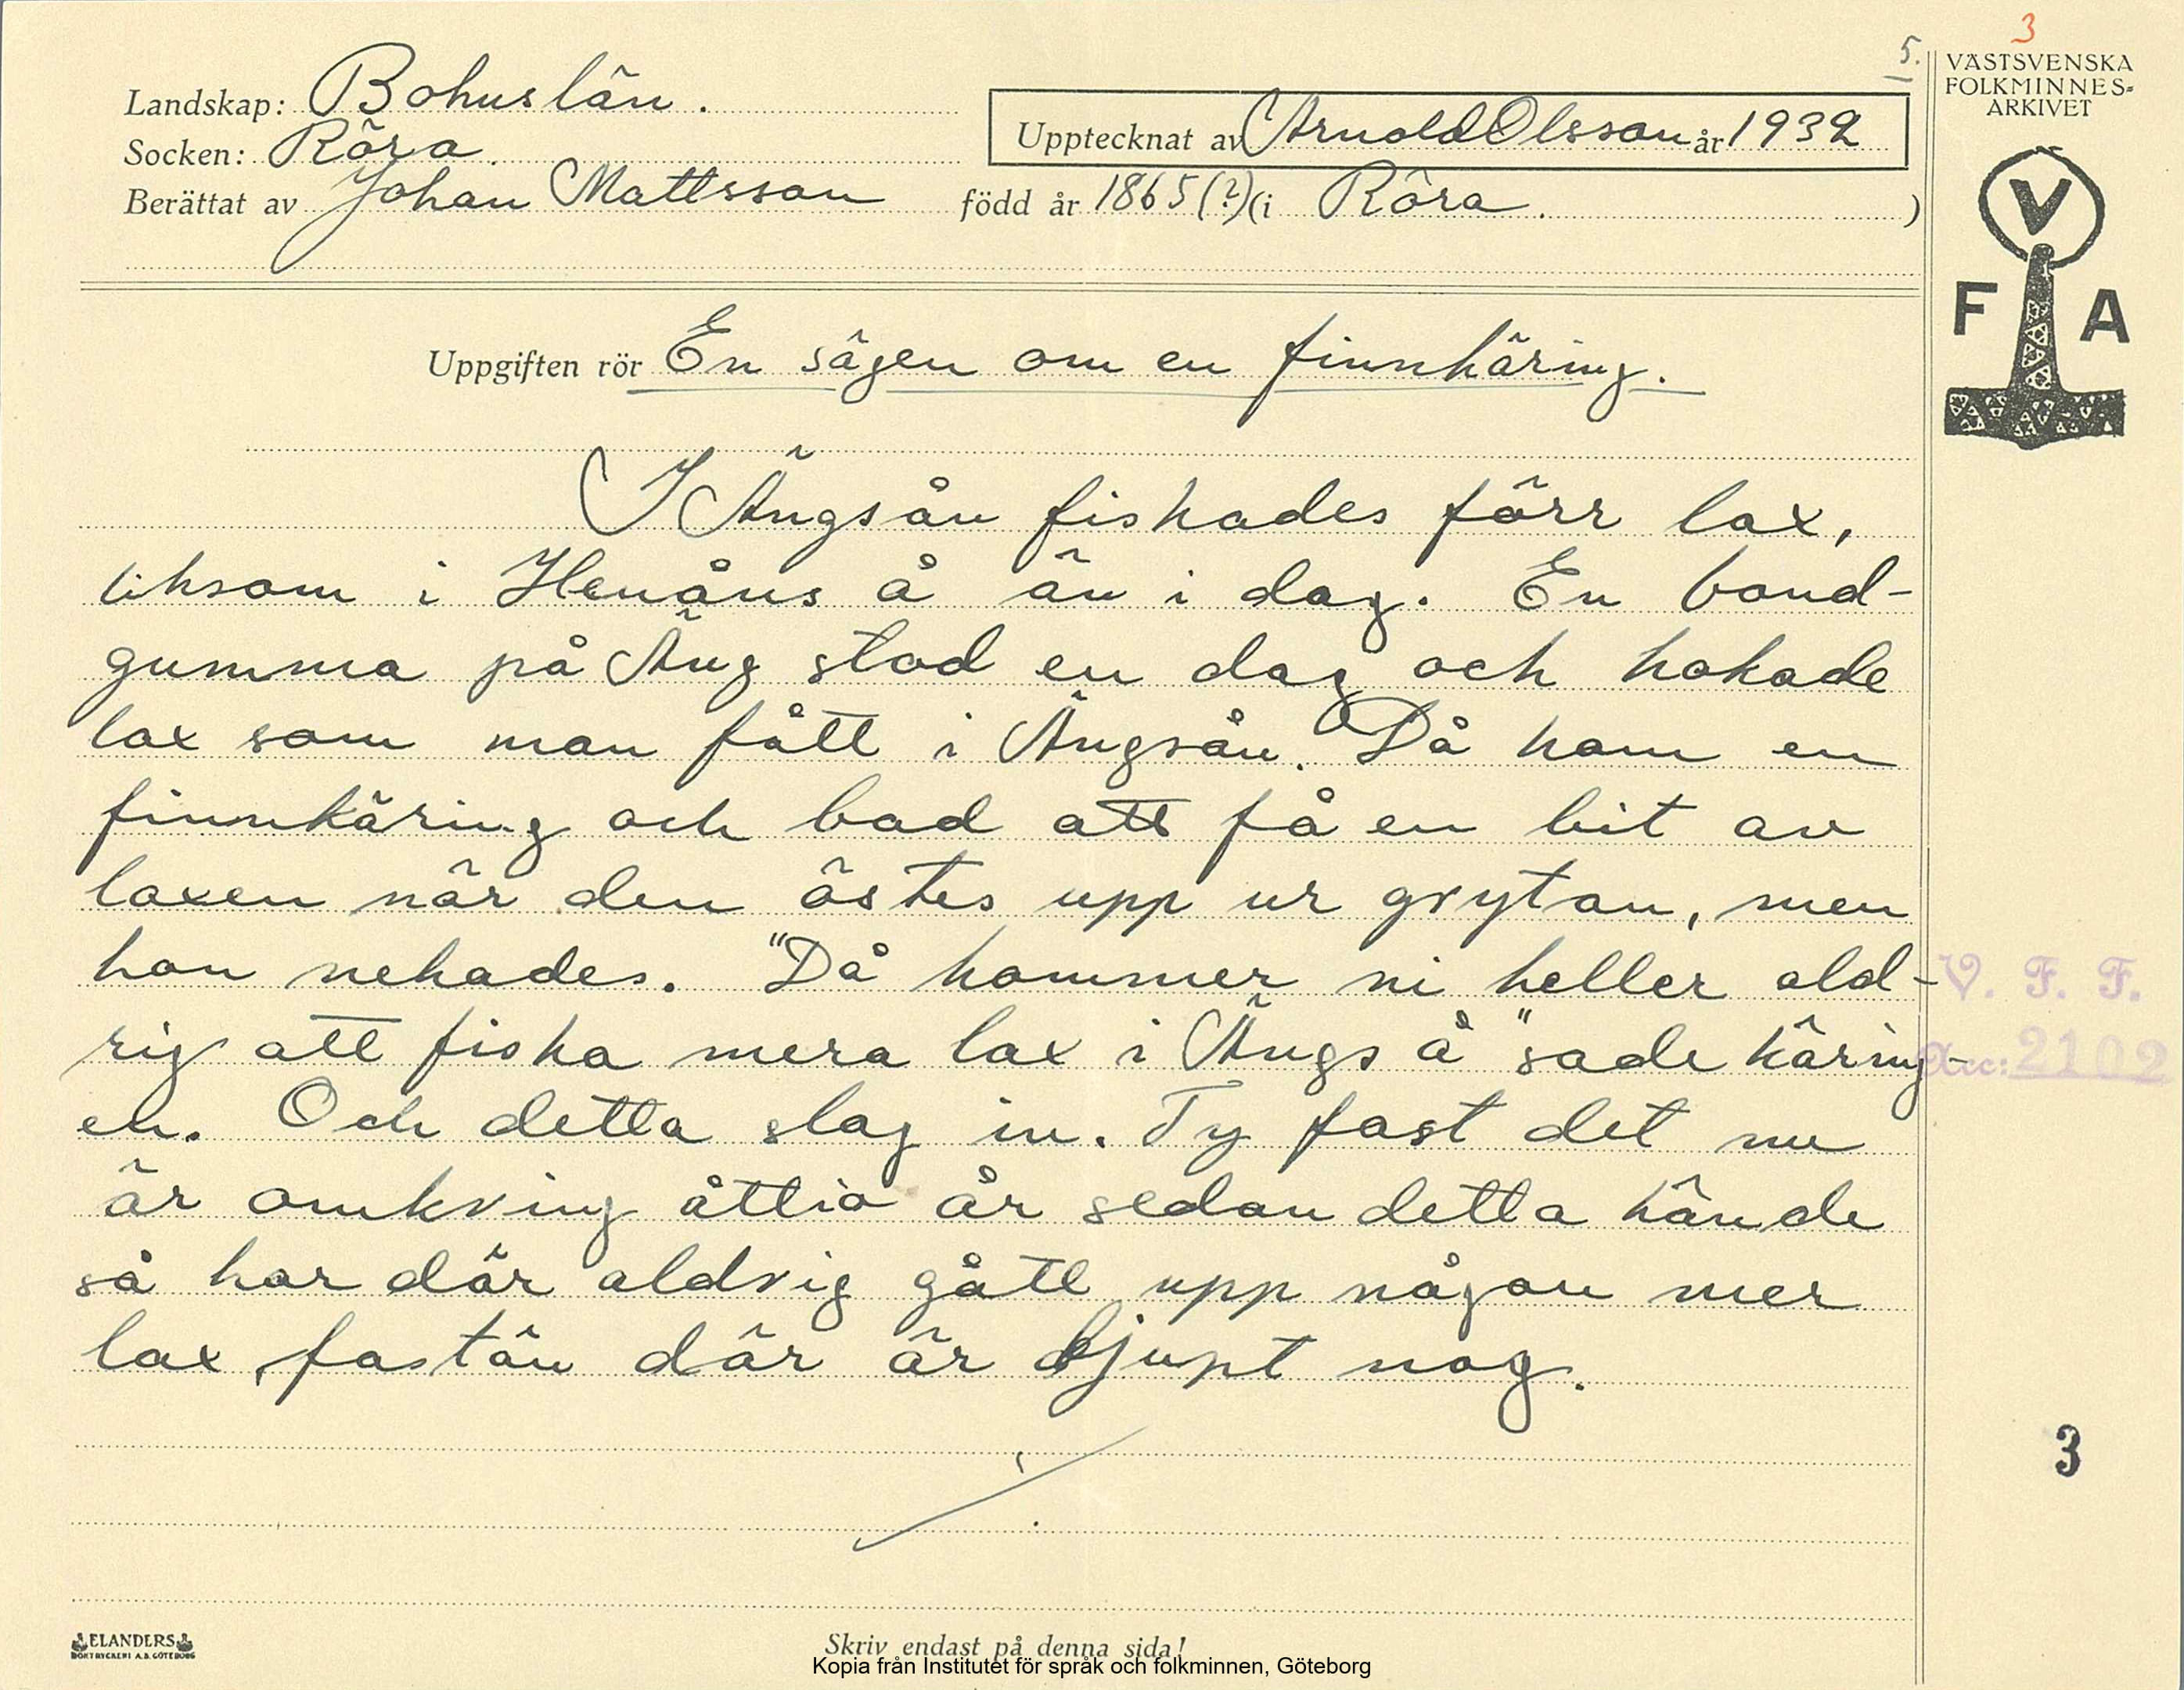 3
5.
VÄSTSVENSKA
FOLKMINNES-
ARKIVET
Landskap: Bohuslän.
Upptecknat av Arnold Olsson år 1932
Socken: Röra.
Berättat av Johan Mattsson född år 1865(?) (i Röra. )
V
F A
Uppgiften rör En sägen om en finnkäring.
I Ängsån fiskades förr lax,
liksom i Henåns å än i dag. En bond-
gumma på Äng stod en dag och kokade
lax som man fått i Ängsån. Då kom en
finnkäring och bad att få en bit av
laxen när den östes upp ur grytan, men
hon nekades. "Då kommer ni heller ald-
rig att fiska mera lax i Ängs å" sade käring-
en. Och detta slog in. Ty fast det nu
är omkring åttio år sedan detta hände
så har där aldrig gått upp någon mer
lax, fastän där är djupt nog.
V. F. F.
Acc: 2102
3
ELANDERS
BOKTRYCKERI A.B. GÖTEBORG
Skriv endast på denna sida!
Kopia från Institutet för språk och folkminnen, Göteborg